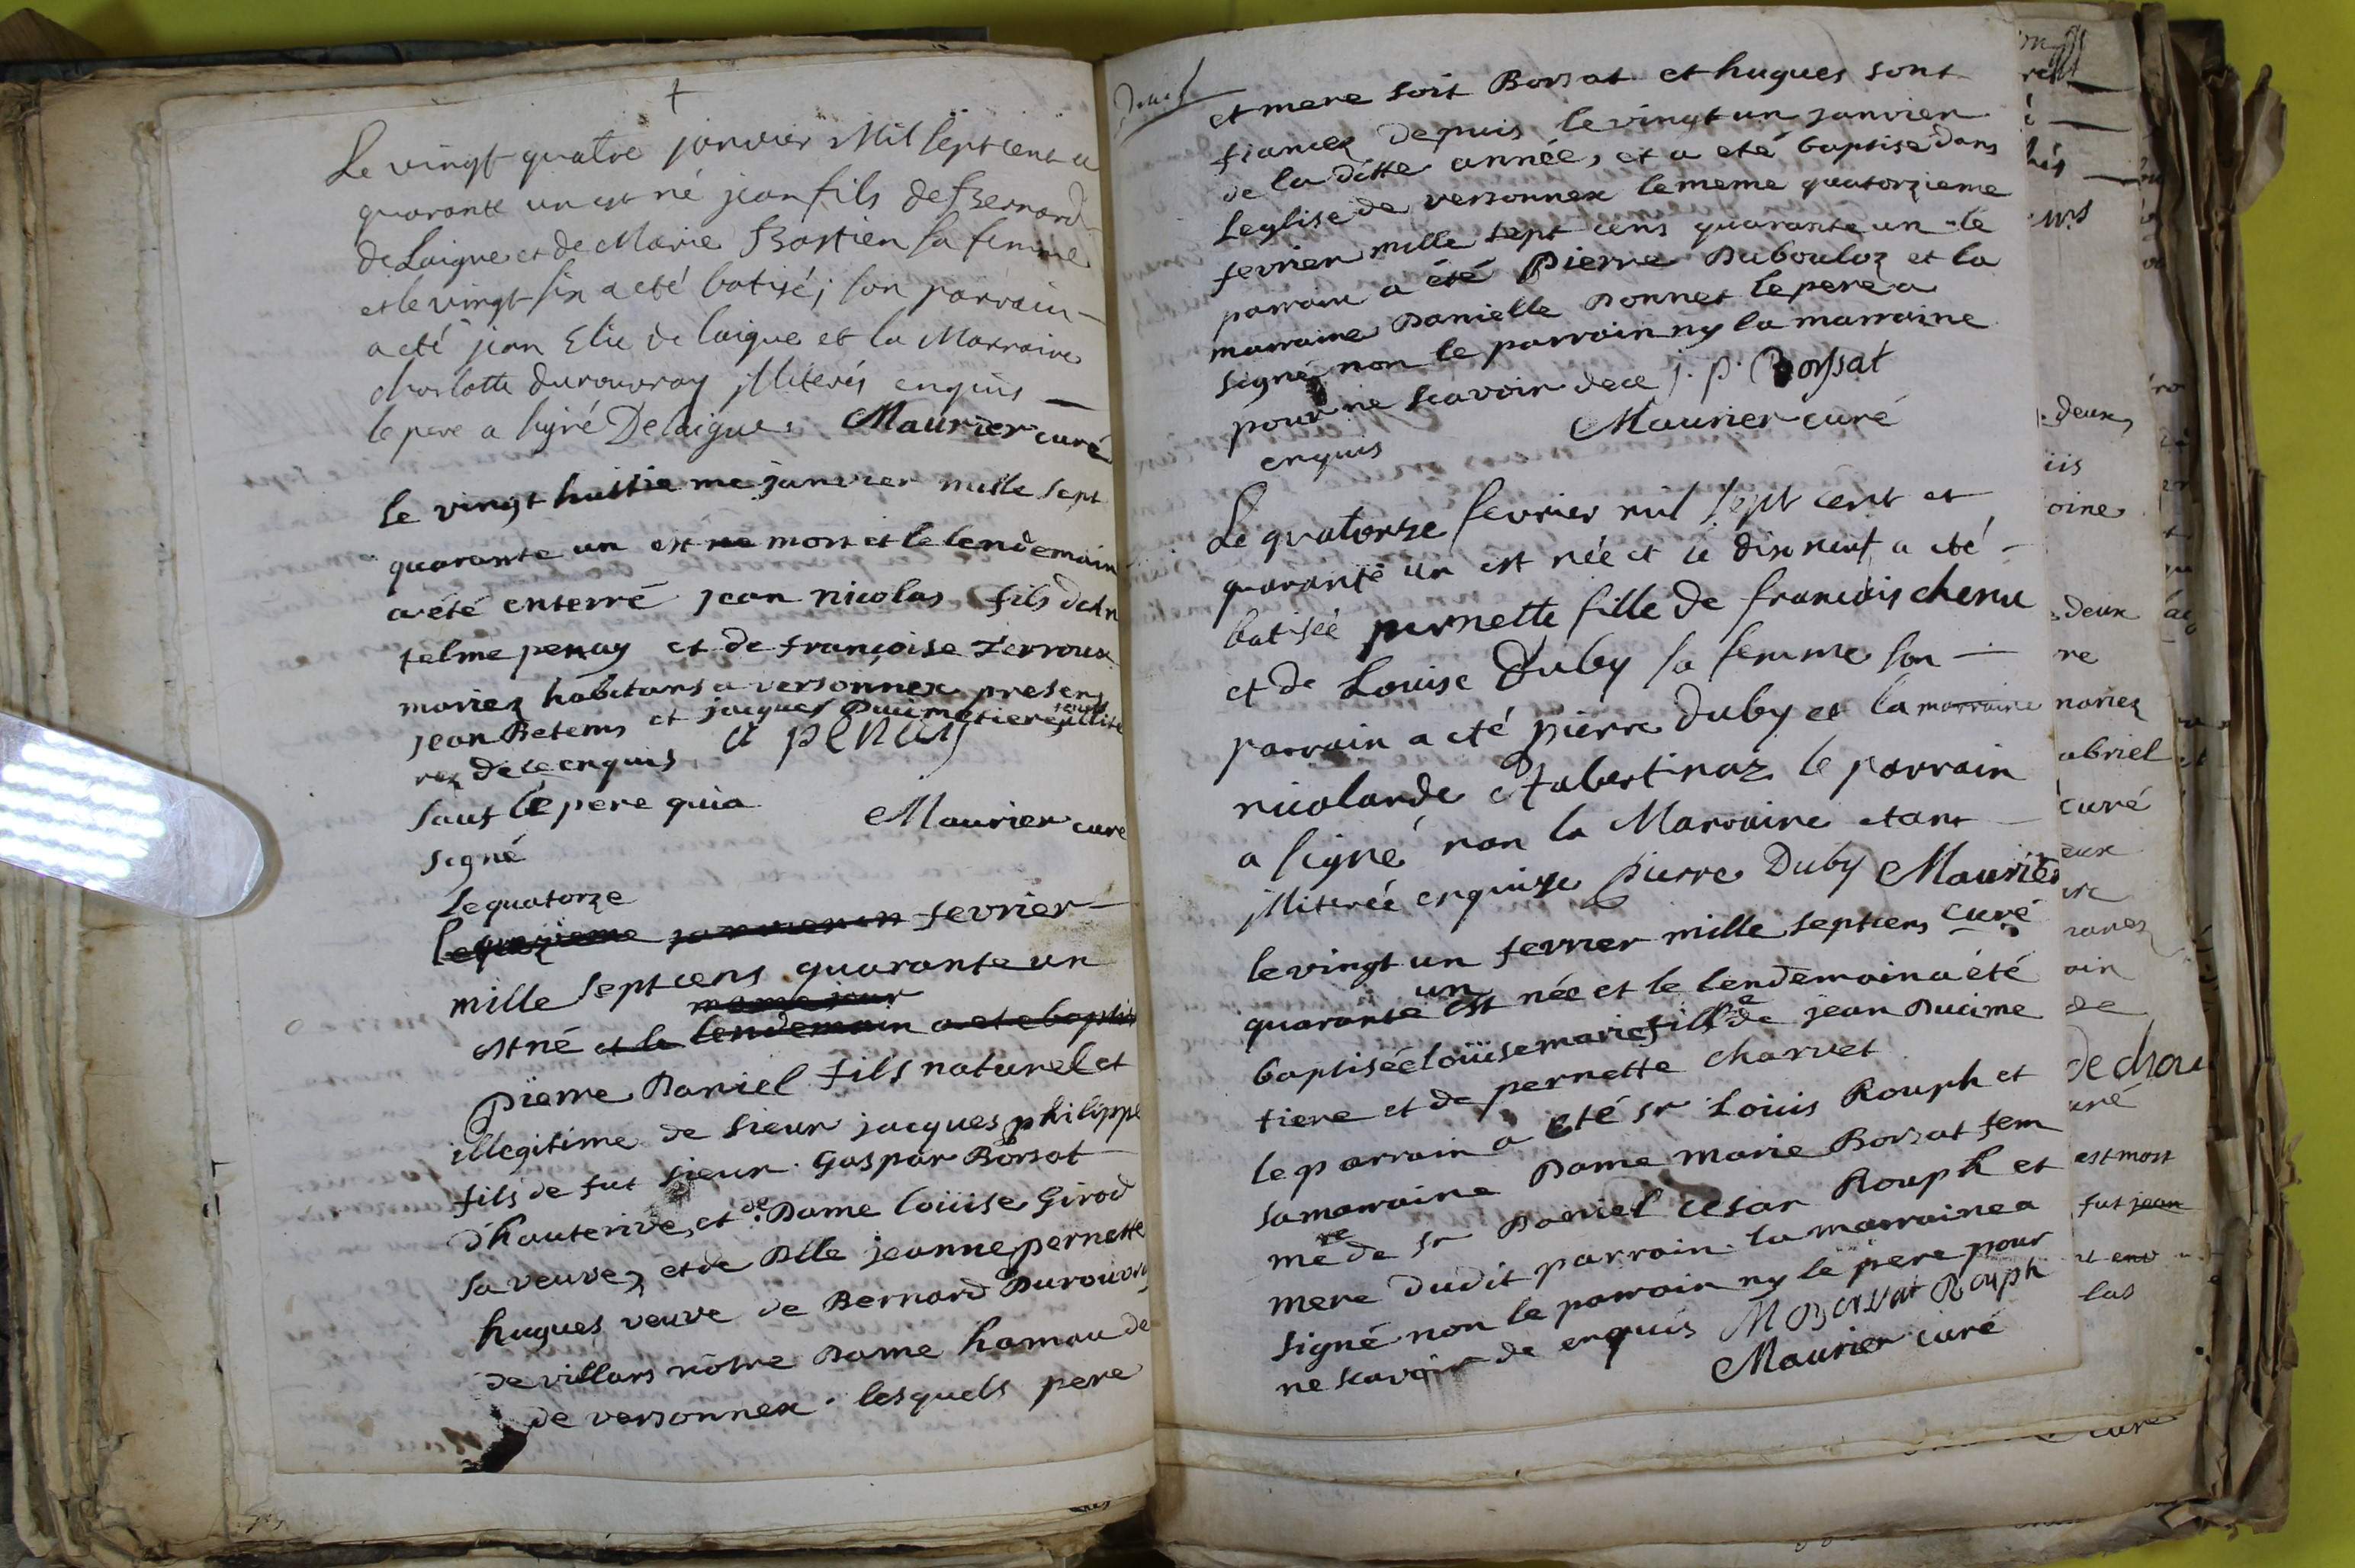 Le vingt-quatre janvier Mil sept cent
quarante un est né jean fils de Bernard
de Laigue et de Marie Bastien sa femme
et le vingt six a eté batisé; son parrain
a eté jean Elie de laigue et la Marraine
charlotte durouvray jlliterés enquis
le pere a signé Delaigue. Maurier curé
le vingt huitie me janvier mille sept
quarante un est ne mort et le lendemain
a été enterré jean nicolas fils dan
telme penay et de françoise Terroux
mariez habitans a versonnex presens
jean Betems et jacques Ducimetiere jllite
rez de ce enquis a penay
sauf le pere qui a
signé Maurier curé
Le quatorze
le janvier fevrier
mille sept cens quarante un
meme jour
est né et le lendemain a ete baptisé
pierre Daniel fils naturel et
illegitime de sieur jacques philippe
fils de fut sieur Gaspar Borsat
d'hauterive, et de Dame loüise Girod
sa veuve, et de Dlle jeanne pernette
hugues veuve de Bernard Durouvray
de villars nôtre Dame hamau de
de versonnex. lesquels pere
et mere soit Borsat et hugues sont
fiancez depuis le vingt un janvier
de la ditte année, et a eté baptisé dans
Leglise de versonnex le meme quatorzieme
fevrier mille sept cens quarante un le
parrain a été Pierre Dubouloz et la
marraine Danielle Donnet le pere a
signé non le parrain ny la marraine
pour ne scavoir de ce j. p. Borssat
enquis Maurier curé
Le quatorze fevrier mil sept cent et
quarante un est née et le dix neuf a eté
batisée pernette fille de francois chenu
et de Louise Duby sa femme son
parrain a eté pierre duby et la marraine
nicolarde le parrain
a signé non la Marraine etant
jlliterée enquise pierre Duby Maurier
curé
le vingt un fevrier mille sept cens
quarante un est née et le lendemain a été
baptisée loüise marie fille de jean Ducime
tiere et de pernette charvet
le parrain a eté sr Loüis Rouph et
sa maraine Dame marie Borsat fem
me de sr Daniel cesar Rouph et
mere dudit parrain. la marraine a
signé non le parrain ny le pere pour
ne scavoir de enquis M Borsat Rouph
Maurier curé
deux
oine
deux
re
mariez
abriel
curé
de
de
curé
est mort
fut jean
las